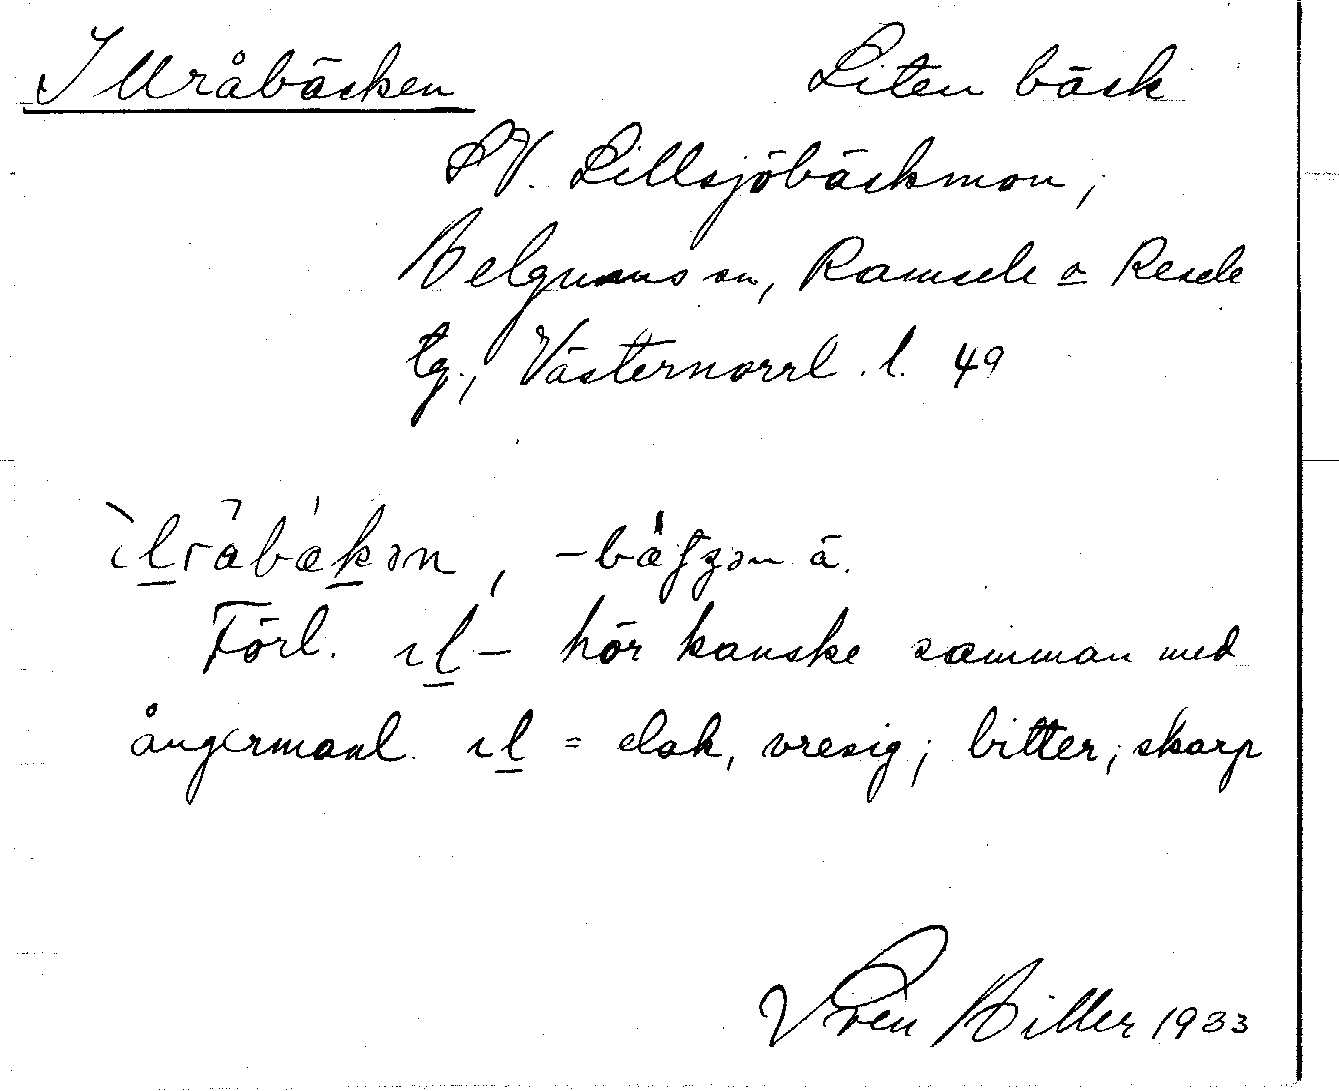 Illråbäcken Liten bäck
SV. Lillsjöbäckmon,
Helgums sn, Ramsele o Resele
tg., Västernorrl. l. 49
ı̀l̲råbäk̲ən, -bäʃʒən ä.
Förl. ıl̲- hör kanske samman med
ångermanl. ıl̲ = elak, vresig; bitter; skarp
Sven Hiller 1933